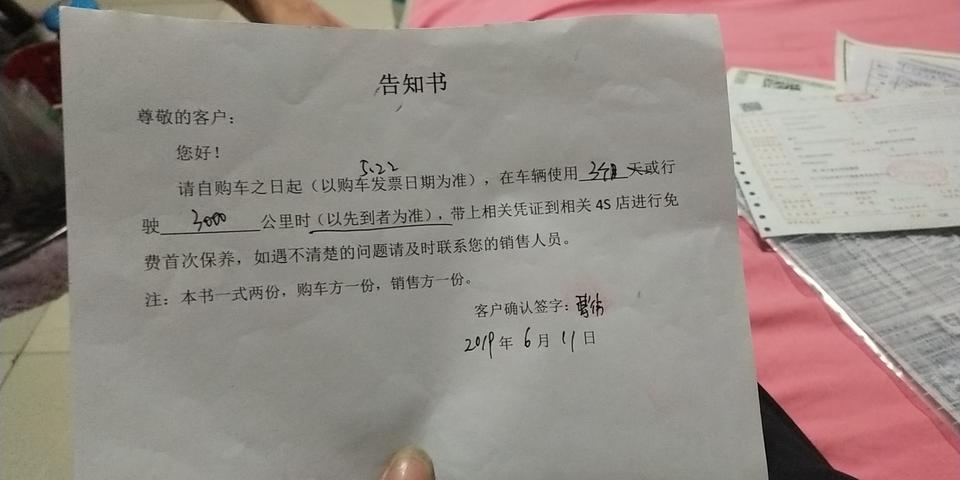 告知书
尊敬的客户：
您好！
5.22
请自购车之日起（以购车发票日期为准），在车辆使用 3个月 天或行
驶 3000 公里时（以先到者为准），带上相关凭证到相关 4S 店进行免
费首次保养，如遇不清楚的问题请及时联系您的销售人员。
注：本书一式两份，购车方一份，销售方一份。
客户确认签字：
2019 年 6 月 11 日